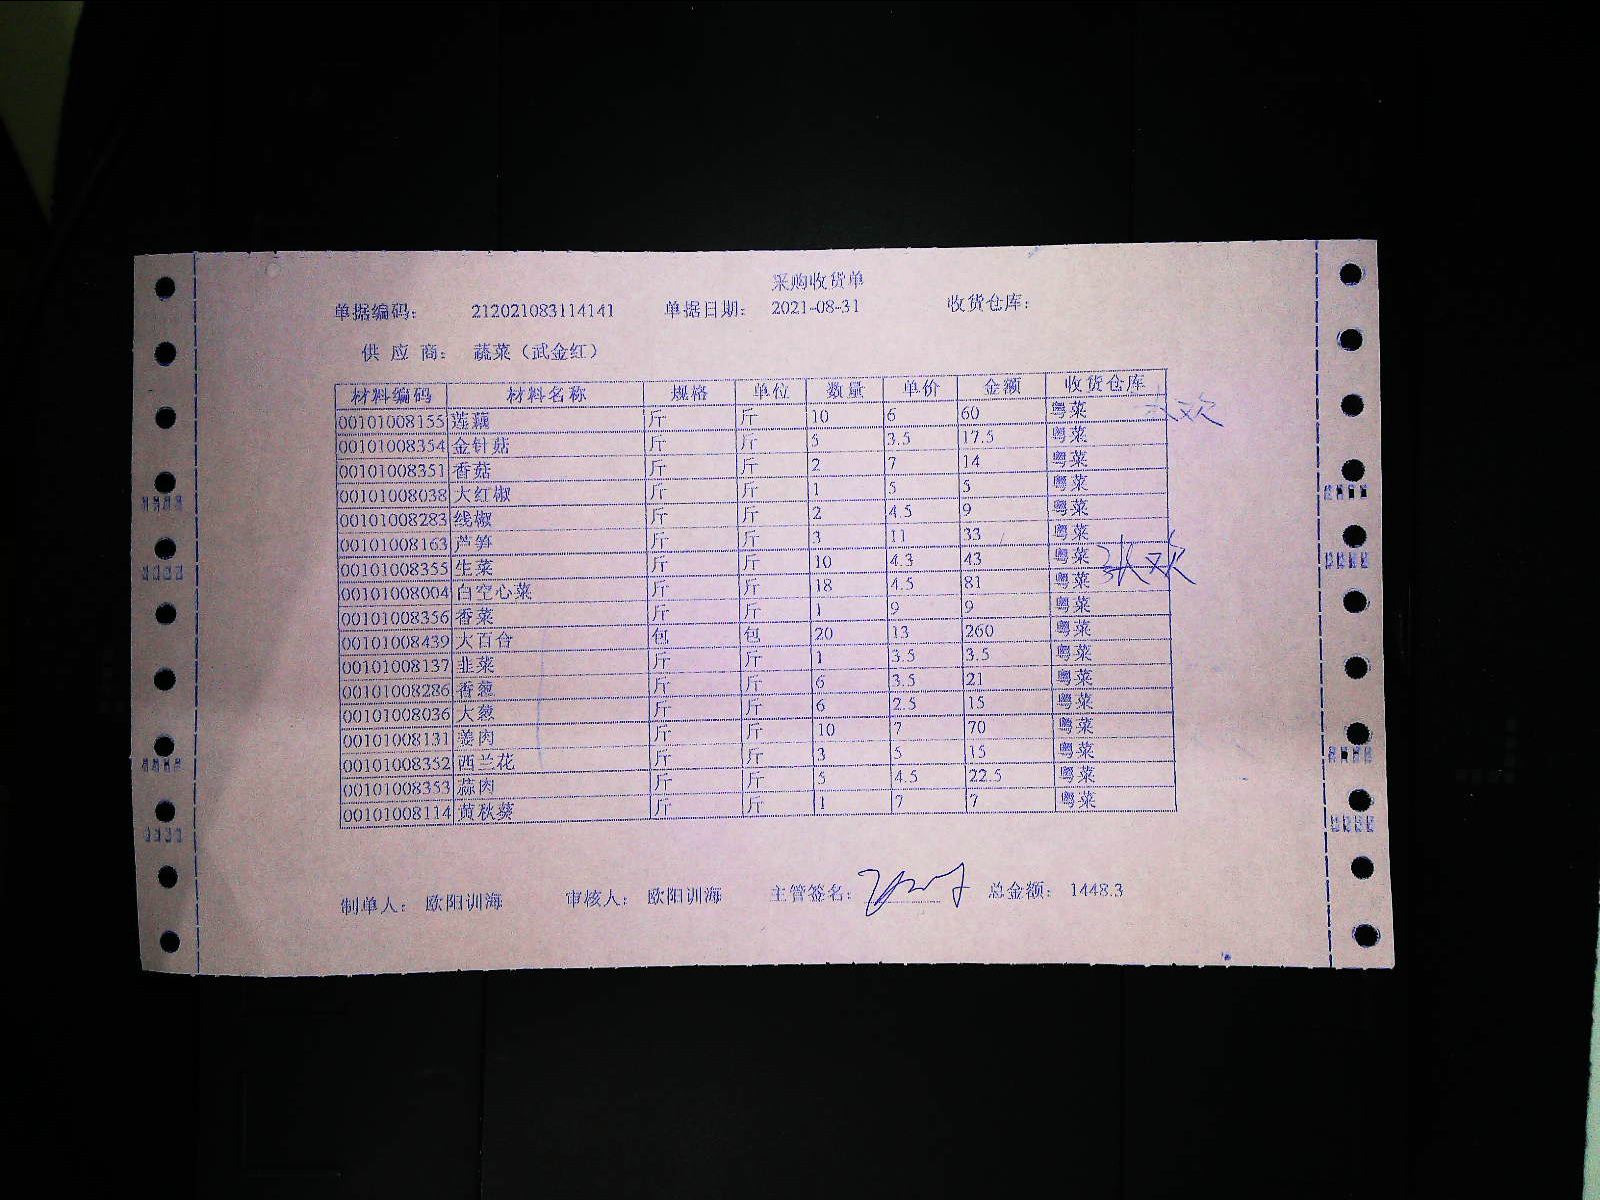 采购收货单
单据编码： 212021083114141 单据日期： 2021-08-31 收货仓库：
供 应 商： 蔬菜（武金红）
材料编码 材料名称 规格 单位 数量 单价 金额 收货仓库
00101008155 莲藕 斤 斤 10 6 60 粤菜
00101008354 金针菇 斤 斤 5 3.5 17.5 粤菜
00101008351 香菇 斤 斤 2 7 14 粤菜
00101008038 大红椒 斤 斤 1 5 5 粤菜
00101008283 线椒 斤 斤 2 4.5 9 粤菜
00101008163 芦笋 斤 斤 3 11 33 粤菜
00101008355 生菜 斤 斤 10 4.3 43 粤菜 张欢
00101008004 白空心菜 斤 斤 18 4.5 81 粤菜
00101008356 香菜 斤 斤 1 9 9 粤菜
00101008439 大百合 包 包 20 13 260 粤菜
00101008137 韭菜 斤 斤 1 3.5 3.5 粤菜
00101008286 香葱 斤 斤 6 3.5 21 粤菜
00101008036 大葱 斤 斤 6 2.5 15 粤菜
00101008131 姜肉 斤 斤 10 7 70 粤菜
00101008352 西兰花 斤 斤 3 5 15 粤菜
00101008353 蒜肉 斤 斤 5 4.5 22.5 粤菜
00101008114 黄秋葵 斤 斤 1 7 7 粤菜
制单人： 欧阳训海 审核人： 欧阳训海 主管签名： 总金额： 1448.3